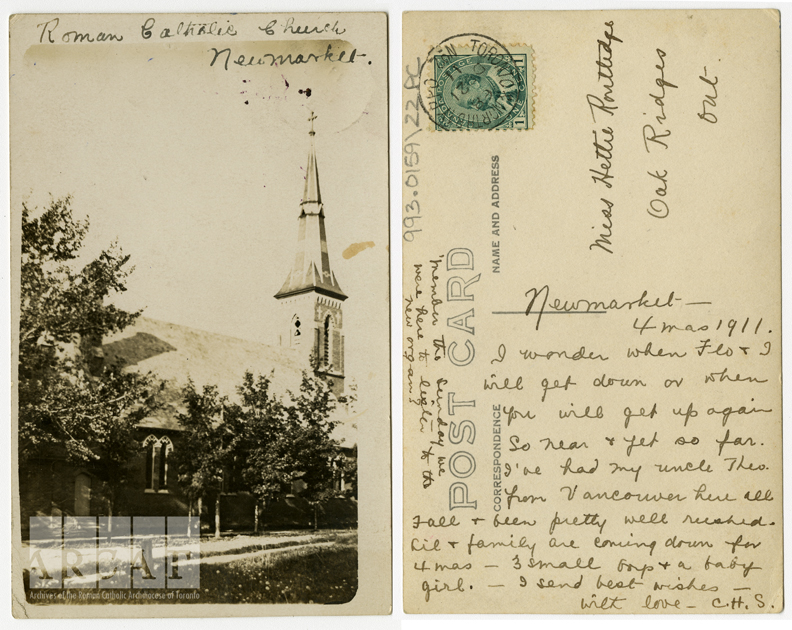 Roman Catholic Church
Newmarket.
ARCAT
Archives of the Roman Catholic Archdiocese of Toronto
TORONTO
NORTH
CANADA
1
993.015A\22PC
Miss Hettie Routledge
Oak Ridges
Ont.
NAME AND ADDRESS
POST CARD
CORRESPONDENCE
'member the Sunday we
were here to listen to the
new organ?
Newmarket—
4 mas 1911.
I wonder when Flo & I
will get down or when
you will get up again
So near & yet so far.
I've had my uncle Theo.
from Vancouver here all
Fall & been pretty well rushed.
Lil & family are coming down for
4 mas — 3 small boys & a baby
girl. — I send best wishes —
with love — C.H.S.